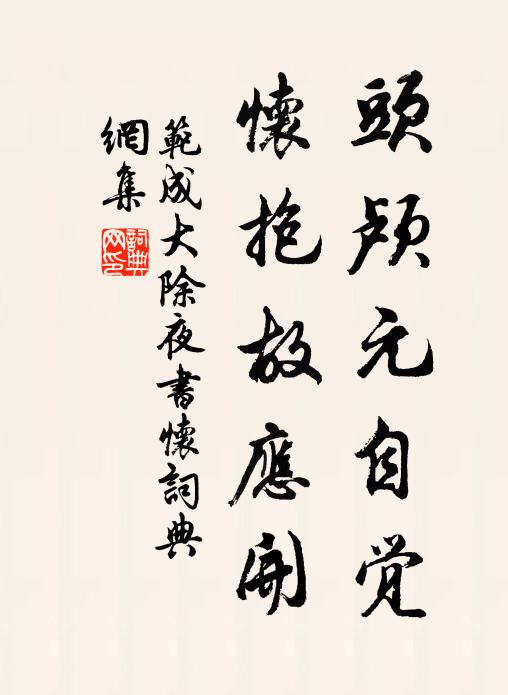 頭颅元自覚
懷抱故應開
範成大除夜書懷詞典
網集
詞典
网印